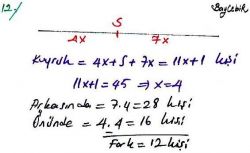 12-)
Bay Lebik
S
4x 7x
Kuyruk = 4x+S+7x = 11x+1 kişi
11x+1=45 ⇒ x=4
Arkasında = 7.4=28 kişi
Önünde = 4.4=16 kişi
Fark=12 kişi